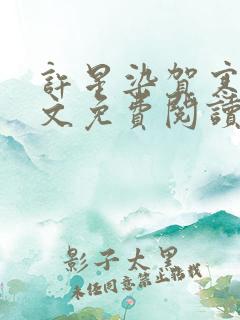 許星染賀寒
文免費閱讀
影子太黑
未經同意禁止搭訕